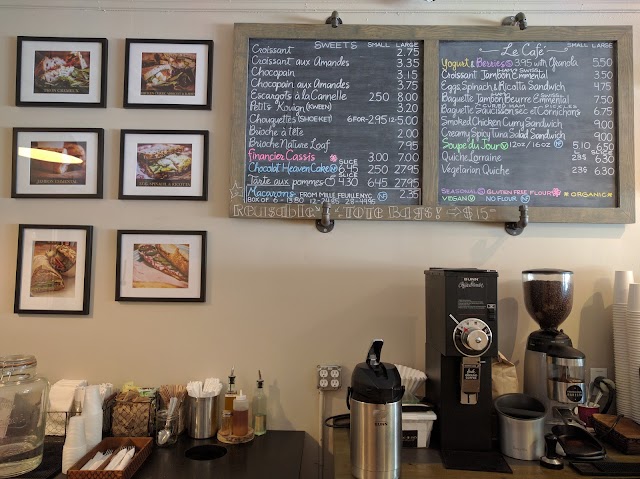 SWEETS SMALL LARGE
Croissant 2.75
Croissant aux Amandes 3.35
Chocopain 3.15
Chocopain aux Amandes 3.75
Escargots à la Cannelle 2.50 8.00
Petits Kouign (KWEEN) 3.20
Chouquettes (SHOE KET) 6 FOR 2.95 12 5.00
Brioche à tête 2.00
Brioche Nature Loaf 7.95
Financier Cassis 3.00 7.00
Chocolat Heaven Cake SLICE 6.45 2.50 27.95
Tarte aux pommes SLICE 4.30 6.45 27.95
Macarons FROM MILLE FEUILLE NYC 2.35
BOX OF 6 - 13.80 12 - 24.95 28 - 49.95
REUSABLE TOTE BAGS! → $15
Le Café SMALL LARGE
Yogurt & Berries 3.95 with Granola 5.50
Croissant Jambon Emmental 3.50
Eggs, Spinach & Ricotta Sandwich 4.50
Baguette Jambon Beurre Emmental 7.50
CURED HAM PICKLES
Baguette Saucisson sec et Cornichons 6.75
Smoked Chicken Curry Sandwich 9.00
Creamy Spicy Tuna Salad Sandwich 9.00
Soupe du Jour 12oz / 16oz 5.10 6.50
Quiche Lorraine 6.30
Vegetarian Quiche 6.30
SEASONAL GLUTEN FREE FLOUR ORGANIC
VEGAN NO FLOUR
BUNN
BUNN